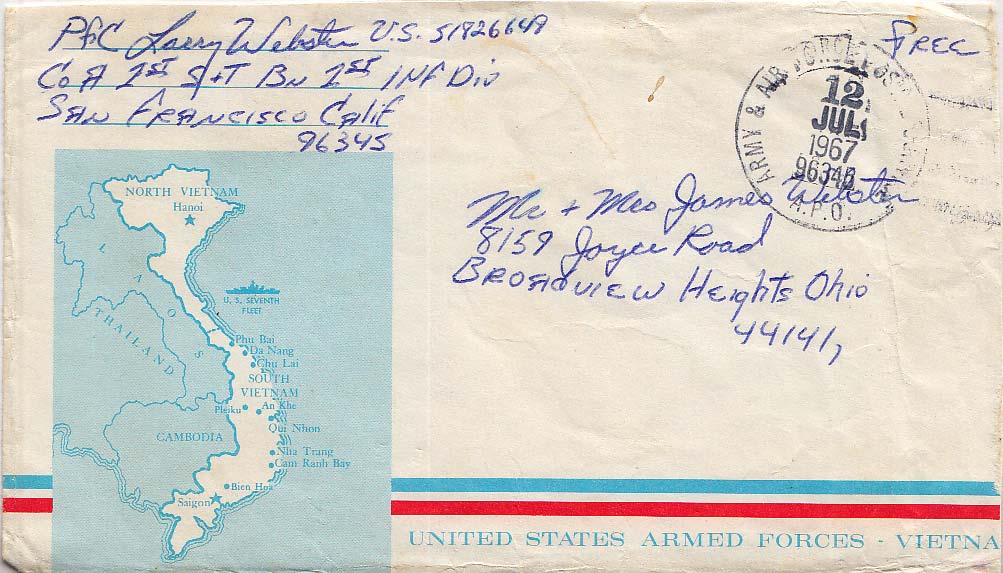 PFC Larry Webster U.S. 51826649
Co A 1ST S+T Bn 1ST INF Div
SAN FRANCISCO CALIF
96345
FREE
ARMY & AIR FORCE POSTAL SERVICE
12
JUL
1967
96345
A.P.O.
Mr + Mrs James Webster
8159 Joyce Road
BROADVIEW HEIGHTS Ohio
44141
NORTH VIETNAM
Hanoi
LAOS
U. S. SEVENTH
FLEET
THAILAND
Phu Bai
Da Nang
Chu Lai
SOUTH
VIETNAM
Pleiku
An Khe
Qui Nhon
CAMBODIA
Nha Trang
Cam Ranh Bay
Bien Hoa
Saigon
UNITED STATES ARMED FORCES - VIETNA